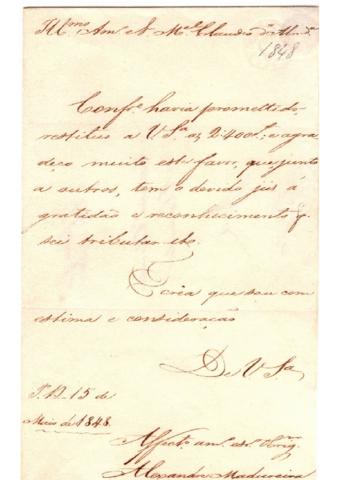 Illmo. Amo. Sr. Mel. Claudio
1848
Confe. havia promettido,
restituo a V Sa. as 2:400$; e agra
deço muito este favor, que, junto
a outros, tem o devido jus á
gratidão e reconhecimento q.
sei tributar etc.
E creia que sou com
estima e consideração
De V Sa.
15 de
Maio de 1848.
Affecto. amo. e obrig
Alexandre Madureira